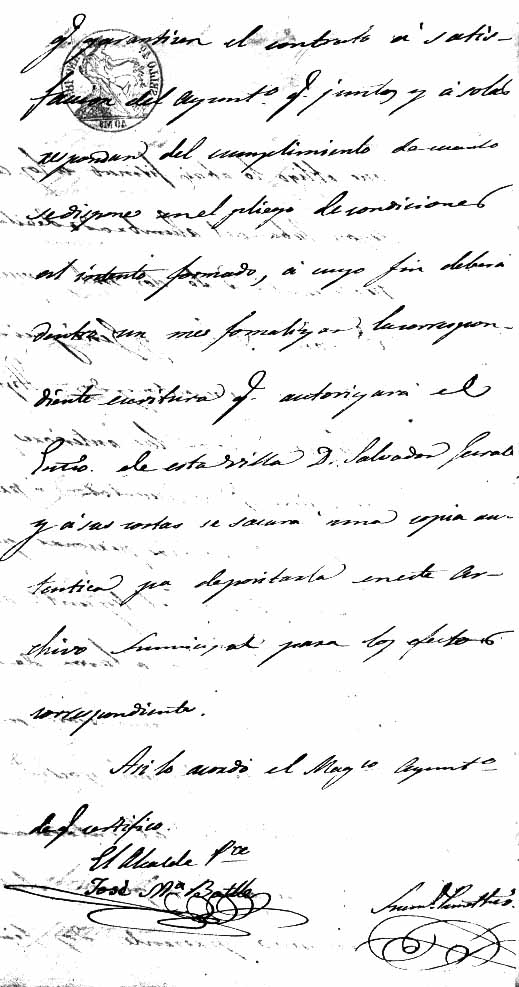 q.e garantizen el contrato á satis-
facion del Ayunt.o q.e juntos y á solas
respondan del cumplimiento de cuanto
se dispone en el pliego de condiciones
al intento formado, á cuyo fin deberá
dentro un mes formalizar la correspon-
diente escritura q.e autorizará el
de esta villa D. Salvador
y á sus costas se sacará una copia au-
tentica p.a depositarla en este Ar-
chivo Municipal para los efectos
correspondiente.
Asi lo acordó el Mag.co Ayunt.o
de q.e certifico.
El Alcalde P.te
José M.a Batlle